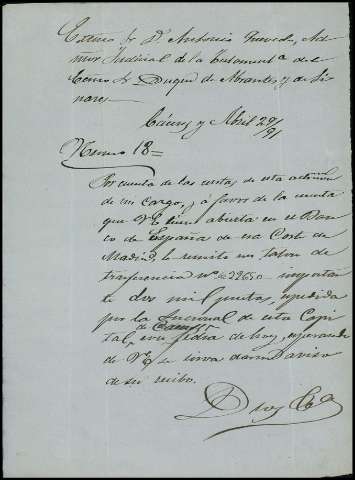 Excmo Sr D. Antonio Quevedo, Ad-
mor Judicial de la Testamentª del
Excmo Sr Duque de Abrantes y de Li-
nares
Cáceres y Abril 29/91
Número 18=
Por cuenta de las rentas de esta admon
de mi cargo, y a favor de la cuenta
que VE tiene abierta en el Ban-
co de España de esa Corte de
Madrid, le remito un talon de
trasferencia nº 22650 importan-
te dos mil pesetas, expedido
por la Sucursal de esta Capi-
de Caceres
tal, con fecha de hoy, esperando
de VE se sirva darme aviso
de su recibo.
D